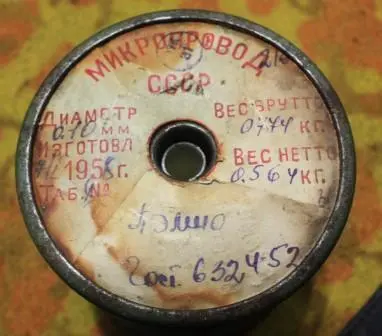 МИКРОПРОВОД
СССР
ДИАМЕТР
0,10 мм
ИЗГОТОВЛ
195 г.
ТАБ.№
ВЕС БРУТТО
0,774 кг.
ВЕС НЕТТО
0.564 кг.
Пэлшо
Гост. 6324-52